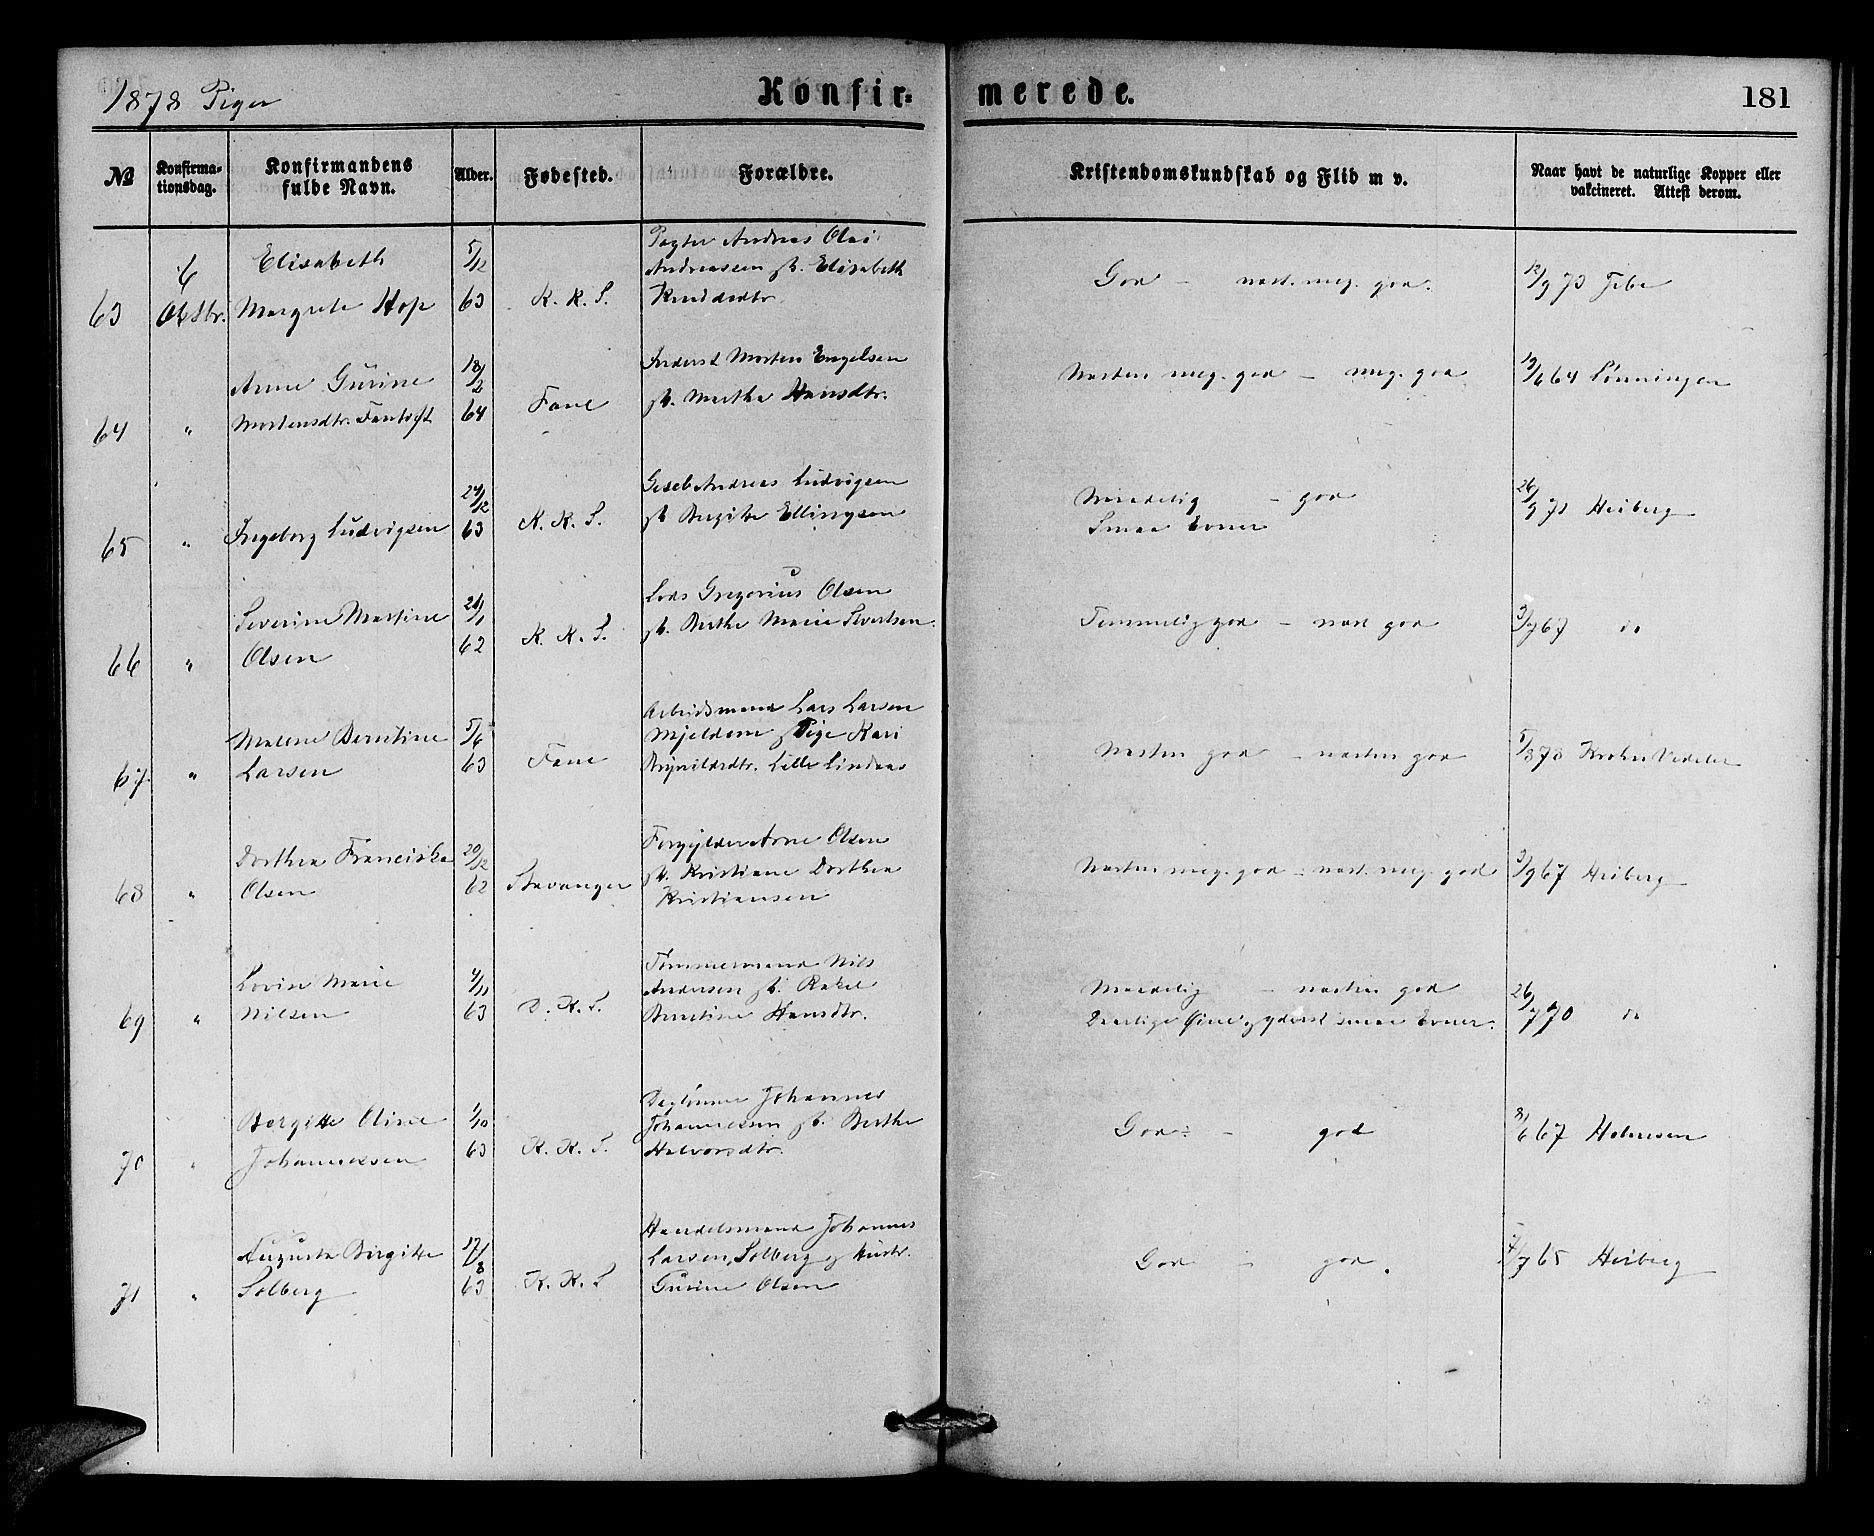 1878 Piger
Konfir= merede.
181
No
Konfirma=
tionsdag.
Konfirmandens
fulde Navn.
Alder.
Fødested.
Forældre.
Kristendomskundskab og Flid m v.
Naar havt de naturlige Kopper eller
vakcineret. Attest derom.
63
6
Oktbr.
Elisabeth
Margrete Hop
5/12
63
K. K. S.
Andreas Olai
Andreassen h. Elisabeth
Knudsdtr.
God — næst. meg. god.
12/9 73 Jebe
64 "
Anne Gurine
Mortensdtr. Fantoft
18/2
64
Fane
Inderst Morten Engelsen
h. Marthe Hansdtr.
Næsten meg. god — meg. god
19/6 64 Lønningen
65 "
Ingeborg Ludvigsen
24/12
63
K. K. S.
Andreas Ludvigsen
h. Birgitte Ellingsen
Maadelig — god
Smaa Evner
26/9 71 Heiberg
66 "
Severine Martine
Olsen
21/1
62
K. K. S.
Lods Gregorius Olsen
h. Berthe Marie Sivertsen
Temmelig god — næst god
3/7 67 do
67 "
Malene Berntine
Larsen
5/6
63
Fane
Arbeidsmand Lars Larsen
Mjeldem Pige Kari
Brynildsdtr. Lille Lindaas
Næsten god — næsten god
5/8 78 Krohn Vedeler
68 "
Dorthea Franciska
Olsen
20/12
62
Stavanger
Forgylder Arne Olsen
h. Kristiane Dorthea
Kristiansen
Næsten meg. god — næst. meg. god
3/9 67 Heiberg
69 "
Lovise Marie
Nilsen
4/11
63
D. K. S.
Tømmermand Nils
Andersen h. Rakel
Berntine Hansdtr.
Maadelig — næsten god
Daarlige Øine og yderst smaa Evner.
26/7 70 do
70 "
Birgitte Oline
Johannessen
1/10
63
K. K. S.
Johannes
Johannessen h. Berthe
Halvorsdtr.
God — god
8/6 67 Holmesen
71 "
Augusta Birgitte
Solberg
17/8
63
K. K. S
Handelsmand Johannes
Larsen Solberg og Hustr.
Gurine Olsen
God — god.
7 65 Heiberg